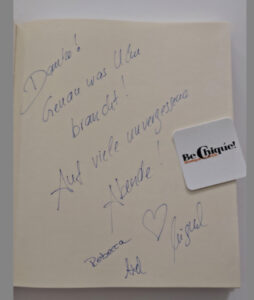 Danke!
Genau was Ulm
braucht!
Auf viele unvergessene
Abende!
Rebecca
Be Chique!